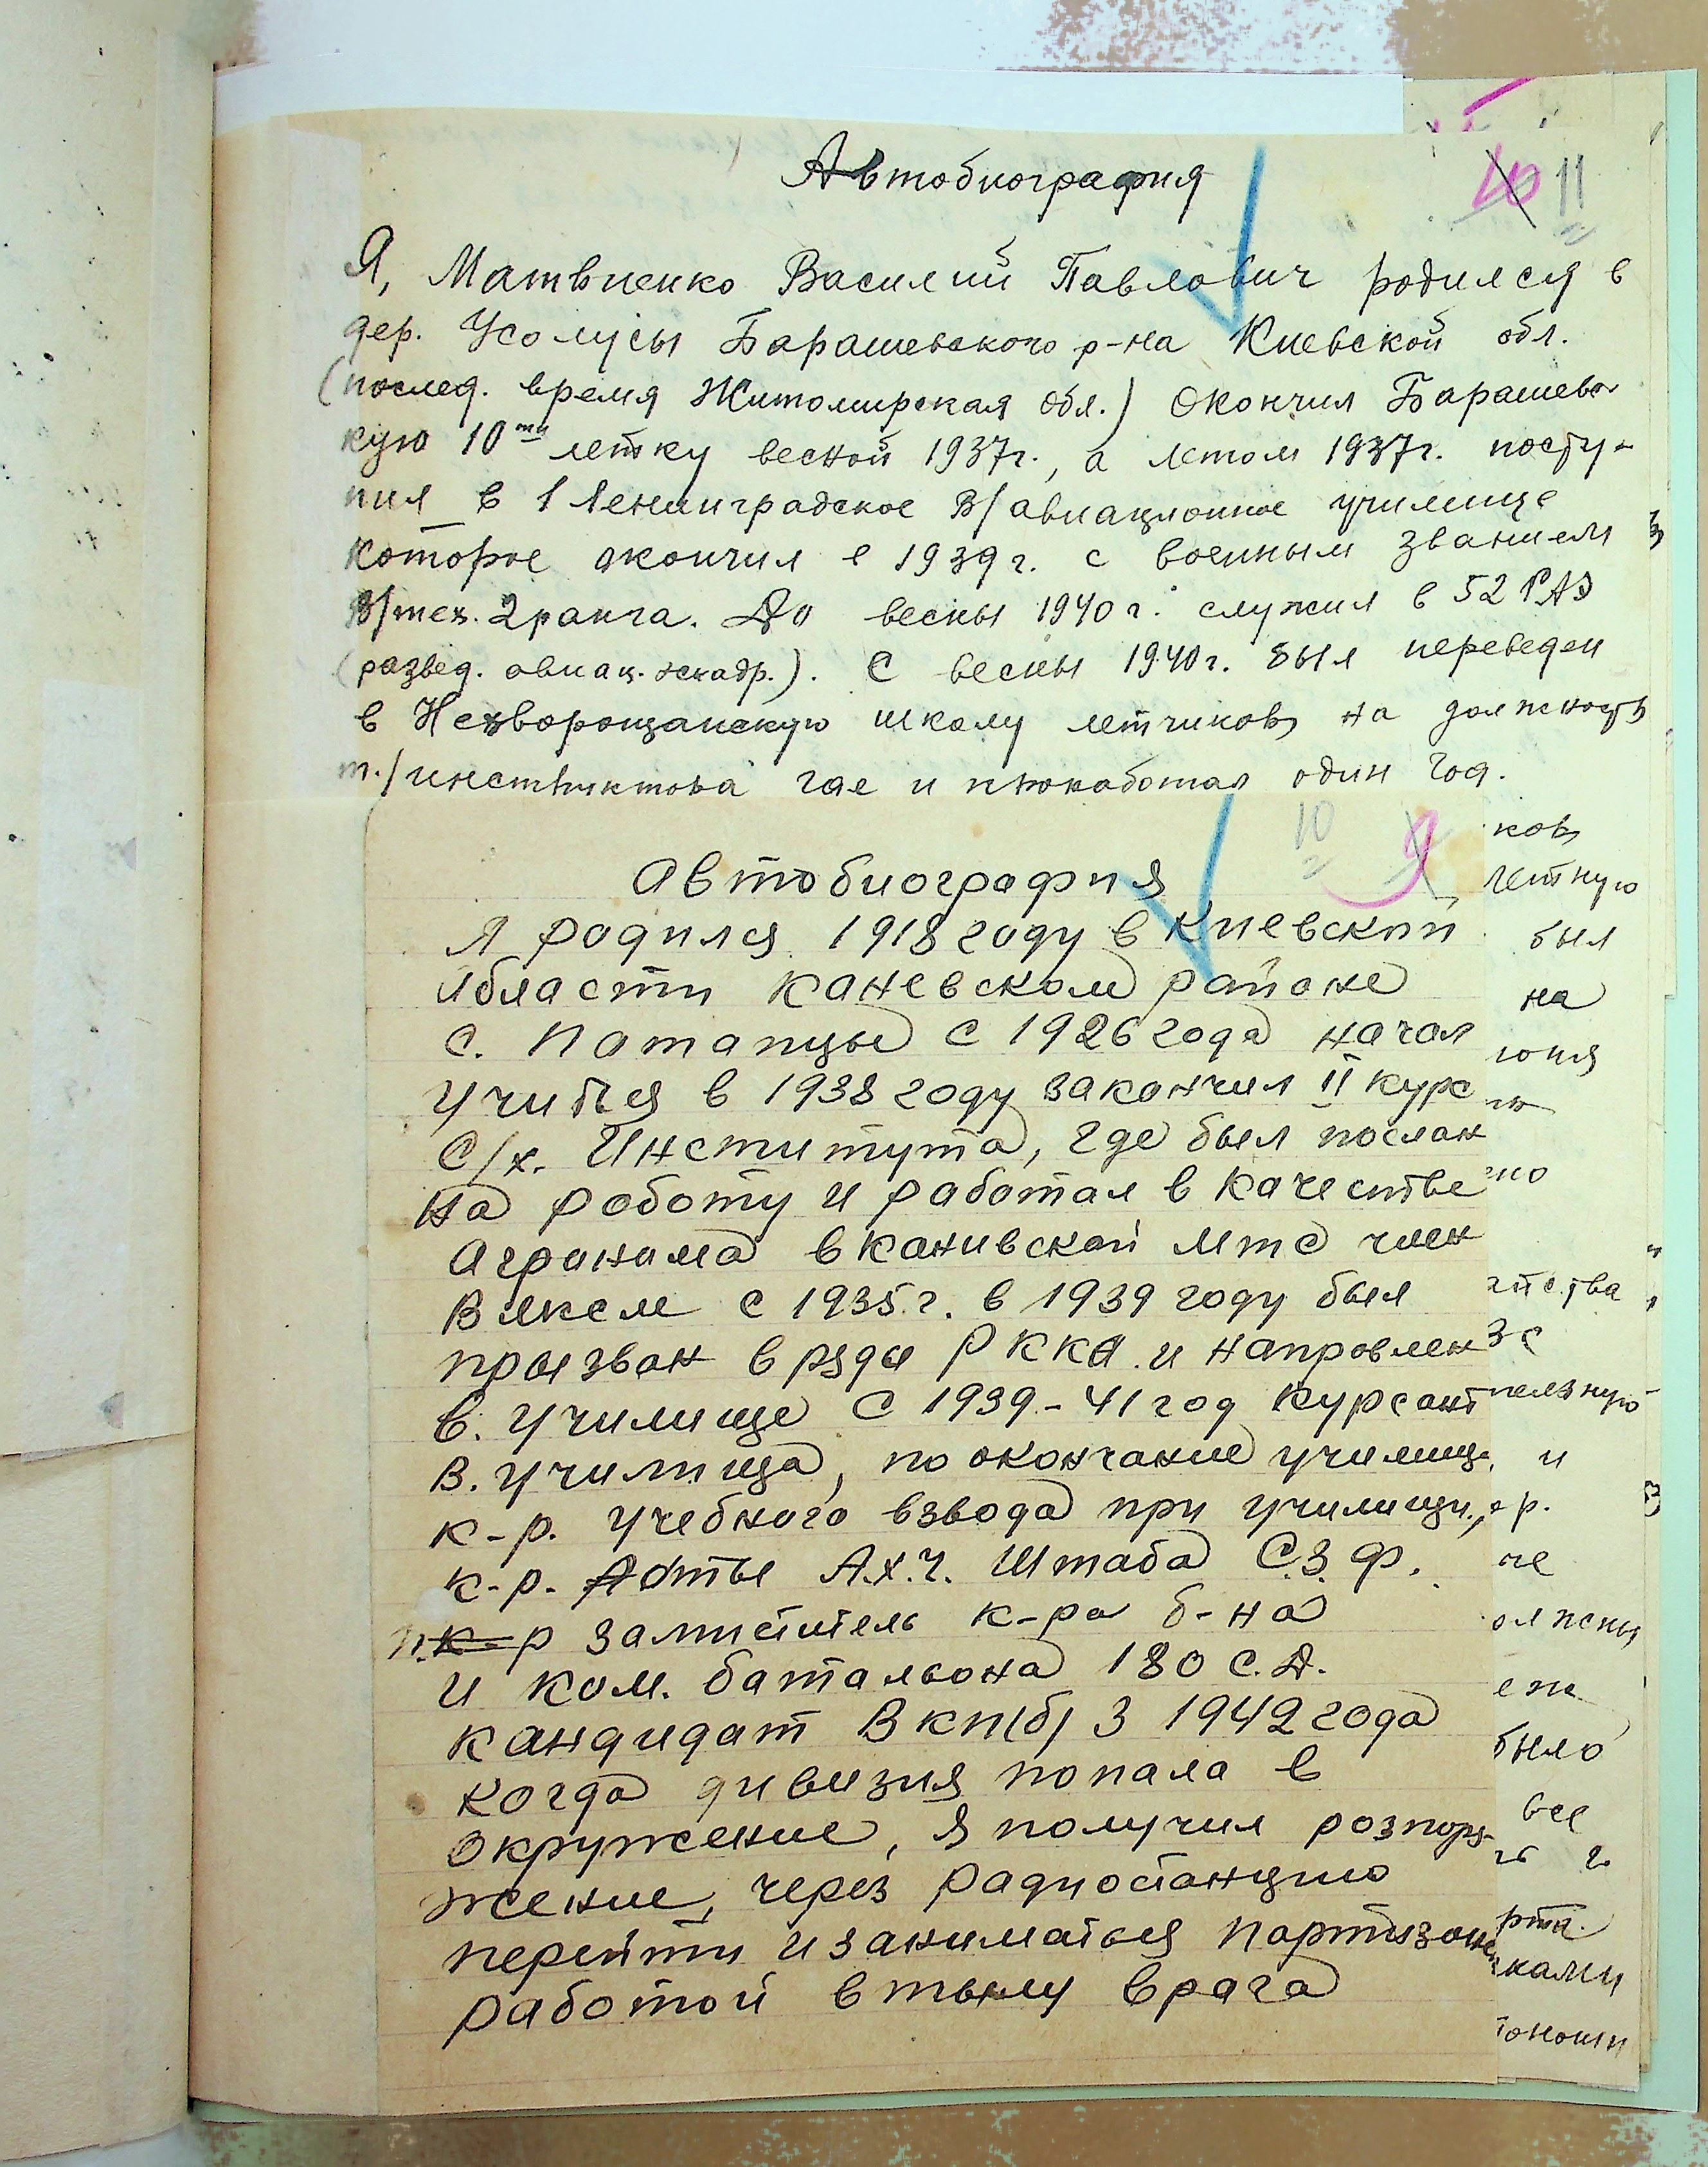 Автобиография
10 11
Я, Матвиенко Василий Павлович родился в
дер. Усолусы Барашевского р-на Киевской обл.
(послед. время Житомирская обл.) Окончил Барашевс-
кую 10ти летку весной 1937г., а летом 1937г. посту-
пил в 1 Ленинградское В/авиационное училище
которое окончил в 1939г. с военным званием
В/тех. 2 ранга. До весны 1940г. служил в 52 РАЭ
(развед. авиац. эскадр.). С весны 1940г. был переведен
в школу летчиков на должность
т./инструктора где и проработал один год.
10 9
Автобиография
Я родился 1918 году в Киевской
области Каневском районе
с. Потапцы с 1926 года начал
учится в 1938 году закончил II курс
С/х. Института, где был послан
на роботу и работал в качестве
Агронома в Канивской мтс член
Влксм с 1935.г. в 1939 году был
призван в ряды РККА. и направлен
в. училище С 1939-41 год курсант
в. училища, по окончание училищ.
к-р. учебного взвода при училищи,
к-р. А.х.ч. Штаба С.З.Ф.
п. к-р заместитель к-ра б-на
и ком. батальона 180 С.Д.
кандидат Вкп(б) З 1942 года
когда дивизия попала в
окружение, я получил розпоря-
жение, через радиостанцию
перейти и заниматься партизанс
работой в тылу врага
ков
летную
был
на
но
йства
Зс
и
ер.
че
было
все
ками